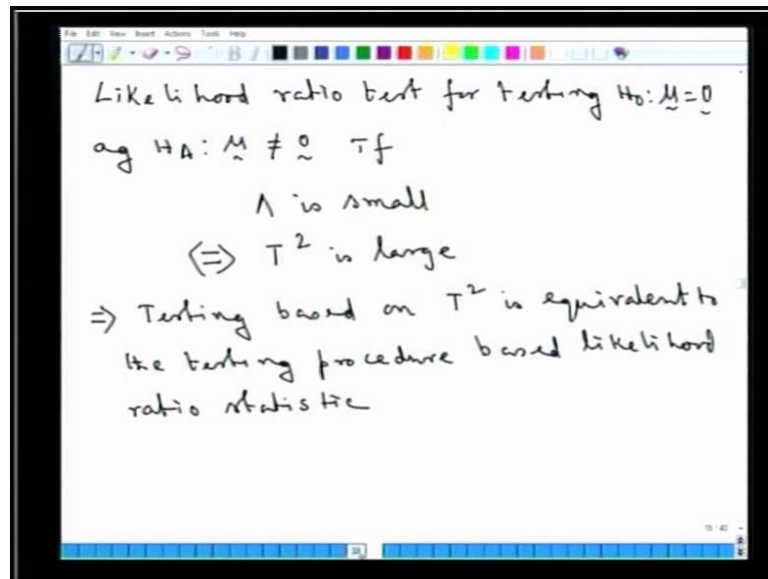 File Edit View Insert Actions Tools Help
Likelihood ratio test for testing H0: μ=0
ag HA: μ ≠ 0 If
Λ is small
(=) T² is large
=> Testing based on T² is equivalent to
the testing procedure based likelihood
ratio statistic